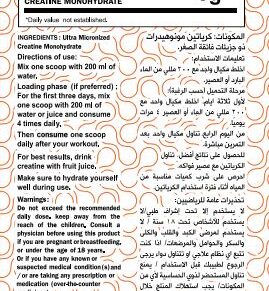 CREATINE MONOHYDRATE
*Daily value not established.
INGREDIENTS: Ultra Micronized
Creatine Monohydrate
Directions of use:
Mix one scoop with 200 ml of
water.
Loading phase (if preferred) :
For the first three days, mix
one scoop with 200 ml of
water or juice and consume
4 times daily.
Then consume one scoop
daily after your workout.
For best results, drink
creatine with fruit juice.
Make sure to hydrate yourself
well during use.
Warnings:
Do not exceed the recommended
daily dose. keep away from the
reach of the children, Consult a
physician before using this product
if you are pregnant or breastfeeding,
or under the age of 18 years.
Or if you have any known or
suspected medical condition(s) and
/ or are taking any prescription or
medication (over-the-counter
المكونات: كرياتين مونوهيدرات
ذو جزيئات فائقة الصغر.
تعليمات الاستخدام:
اخلط مكيال واحد مع ٢٠٠ مللي من الماء
البارد أو العصير.
مرحلة التحميل (حسب الرغبة):
لأول ثلاثة أيام، اخلط مكيال واحد مع
٢٠٠ مللي من الماء أو العصير ٤ مرات
يوميا.
من اليوم الرابع تناول مكيال واحد بعد
التمرين مباشرة.
للحصول على نتائج أفضل، تناول
الكرياتين مع عصير فواكه.
احرص على شرب كميات مناسبة من
المياه أثناء فترة استخدام الكرياتين.
تحذيرات عامة للرياضيين:
لا يستخدم إلا تحت إشراف طبي/لا
يستخدم للأشخاص تحت ١٨ سنة / لا
يستخدم لمرضى الكبد والقلب والكلى
والسكر والحوامل والمرضعات/ إذا كنت
تتبع نظام علاجي أو تتناول دواء يرجى
الرجوع لطبيبك قبل الاستخدام / يمنع
تناول المستحضر لذوي الحساسية لأي من
مكوناته/ يجب استهلاك المنتج خلال